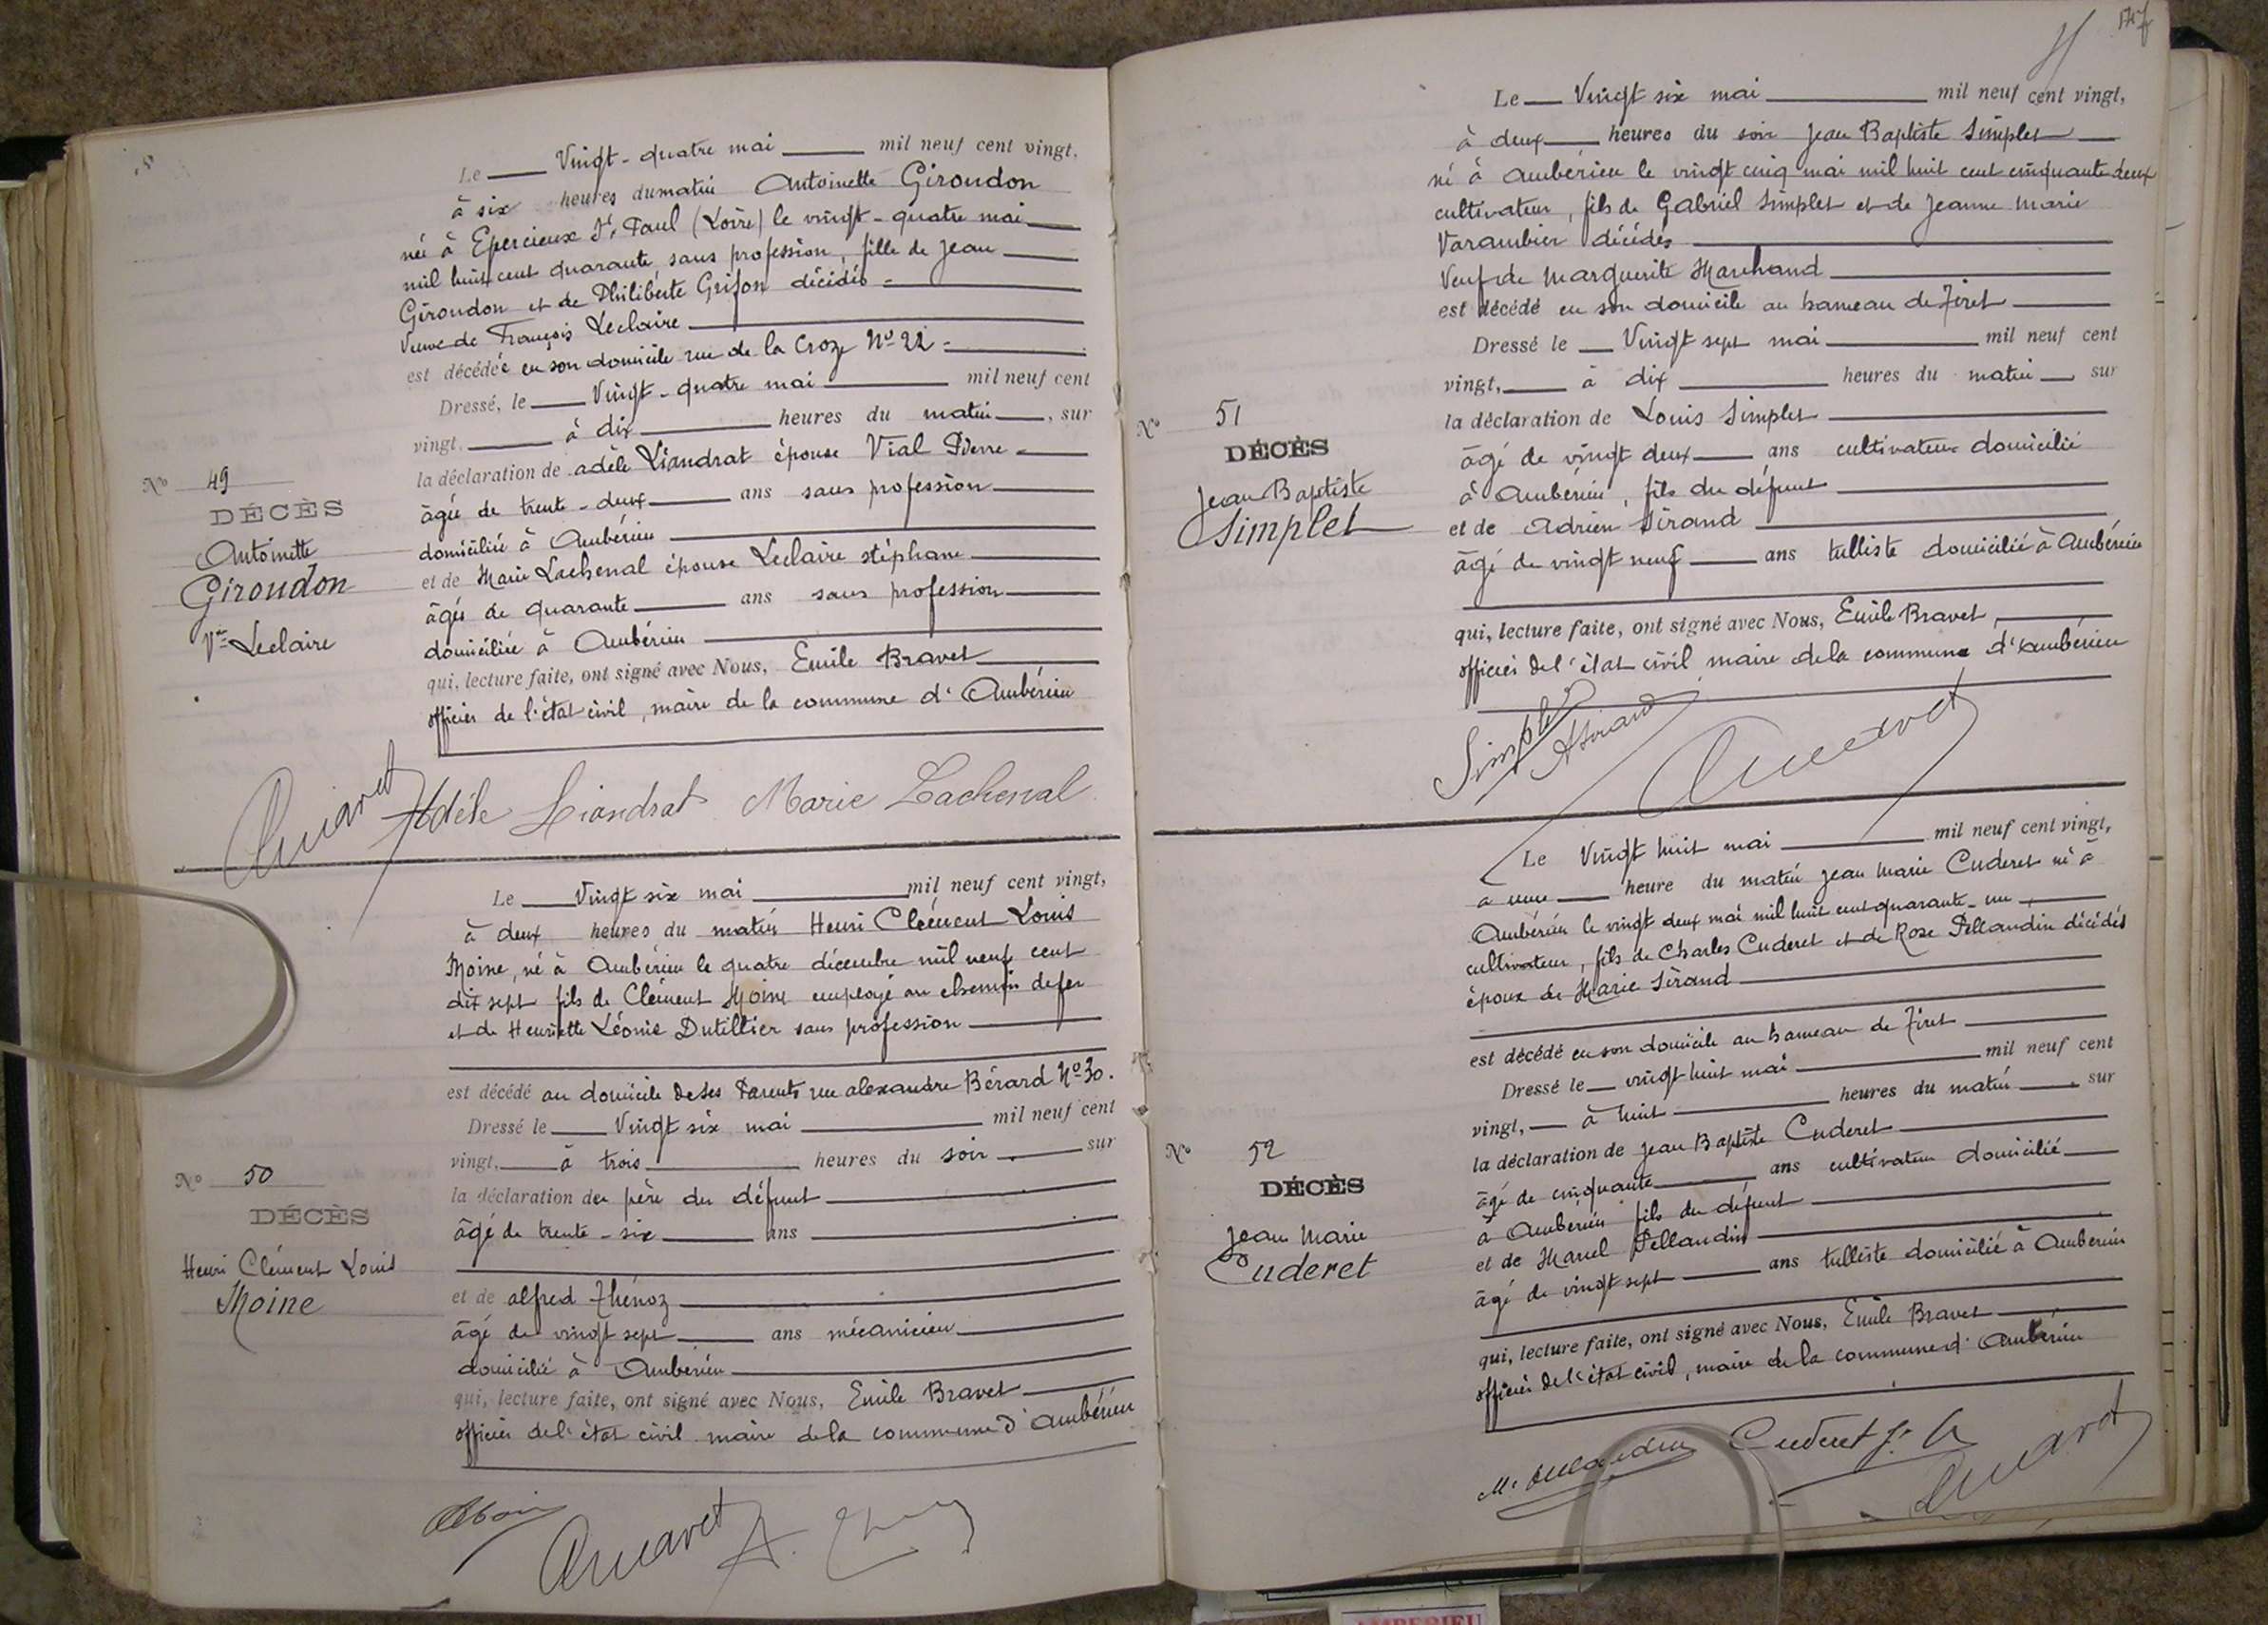 Le Vingt-quatre mai mil neuf cent vingt,
à six heures du matin Antoinette Giroudon
née à Epercieux St Paul (Loire) le vingt-quatre mai
mil huit cent quarante, sans profession, fille de Jean
Giroudon et de Philiberte Grifon décédés
Veuve de François Leclaire
est décédée en son domicile rue de la Croze No 22
Dressé, le Vingt-quatre mai mil neuf cent
vingt, à dix heures du matin, sur
la déclaration de adèle Liandrat épouse Vial Pierre
âgée de trente-deux ans sans profession
domiciliée à Ambérieu
et de Marie Lachenal épouse Leclaire stéphane
âgés de quarante ans sans profession
domiciliée à Ambérieu
qui, lecture faite, ont signé avec Nous, Emile Bravet
officier de l'état civil, maire de la commune d'Ambérieu
No 49
DÉCÈS
Antoinette
Giroudon
Vve Leclaire
Adèle Liandrat Marie Lachenal
Le Vingt six mai mil neuf cent vingt,
à deux heures du matin Henri Clément Louis
Moine, né à Ambérieu le quatre décembre mil neuf cent
dix sept fils de Clément Moine employé au chemin de fer
et de Henriette Léonie Dutillier sans profession
est décédé au domicile de ses Parents rue alexandre Bérard No 30.
Dressé le Vingt six mai mil neuf cent
vingt, à trois heures du soir sur
la déclaration du père du défunt
âgé de trente-six ans
et de alfred Thénoz
âgé de vingt sept ans mécanicien
domicilié à Ambérieu
qui, lecture faite, ont signé avec Nous, Emile Bravet
officier de l'état civil maire de la commune d'Ambérieu
No 50
DÉCÈS
Henri Clément Louis
Moine
Le Vingt six mai mil neuf cent vingt,
à deux heures du soir Jean Baptiste Simplet
né à Ambérieu le vingt cinq mai mil huit cent cinquante deux
cultivateur, fils de Gabriel Simplet et de Jeanne Marie
Varambier décédés
Veuf de Marguerite Marchand
est décédé en son domicile au hameau de Tiret
Dressé le Vingt sept mai mil neuf cent
vingt, à dix heures du matin sur
la déclaration de Louis Simplet
âgé de vingt deux ans cultivateur domicilié
à Ambérieu, fils du défunt
et de Adrien Sirand
âgé de vingt neuf ans tulliste domicilié à Ambérieu
qui, lecture faite, ont signé avec Nous, Emile Bravet,
officier de l'état civil maire de la commune d'Ambérieu
No 51
DÉCÈS
Jean Baptiste
Simplet
Simplet
ASirand
Le Vingt huit mai mil neuf cent vingt,
à une heure du matin Jean Marie Cuderet né à
Ambérieu le vingt deux mai mil huit cent quarante-un,
cultivateur, fils de Charles Cuderet et de Rose Pellaudin décédés
époux de Marie Sirand
est décédé en son domicile au hameau de Tiret
Dressé le vingt huit mai mil neuf cent
vingt, à huit heures du matin, sur
la déclaration de Jean Baptiste Cuderet
âgé de cinquante ans cultivateur domicilié
à Ambérieu fils du défunt
et de Marcel Pellaudin
âgé de vingt sept ans tulliste domicilié à Ambérieu
qui, lecture faite, ont signé avec Nous, Emile Bravet
officier de l'état civil, maire de la commune d'Ambérieu
No 52
DÉCÈS
Jean Marie
Cuderet
Cuderet
AMBERIEU